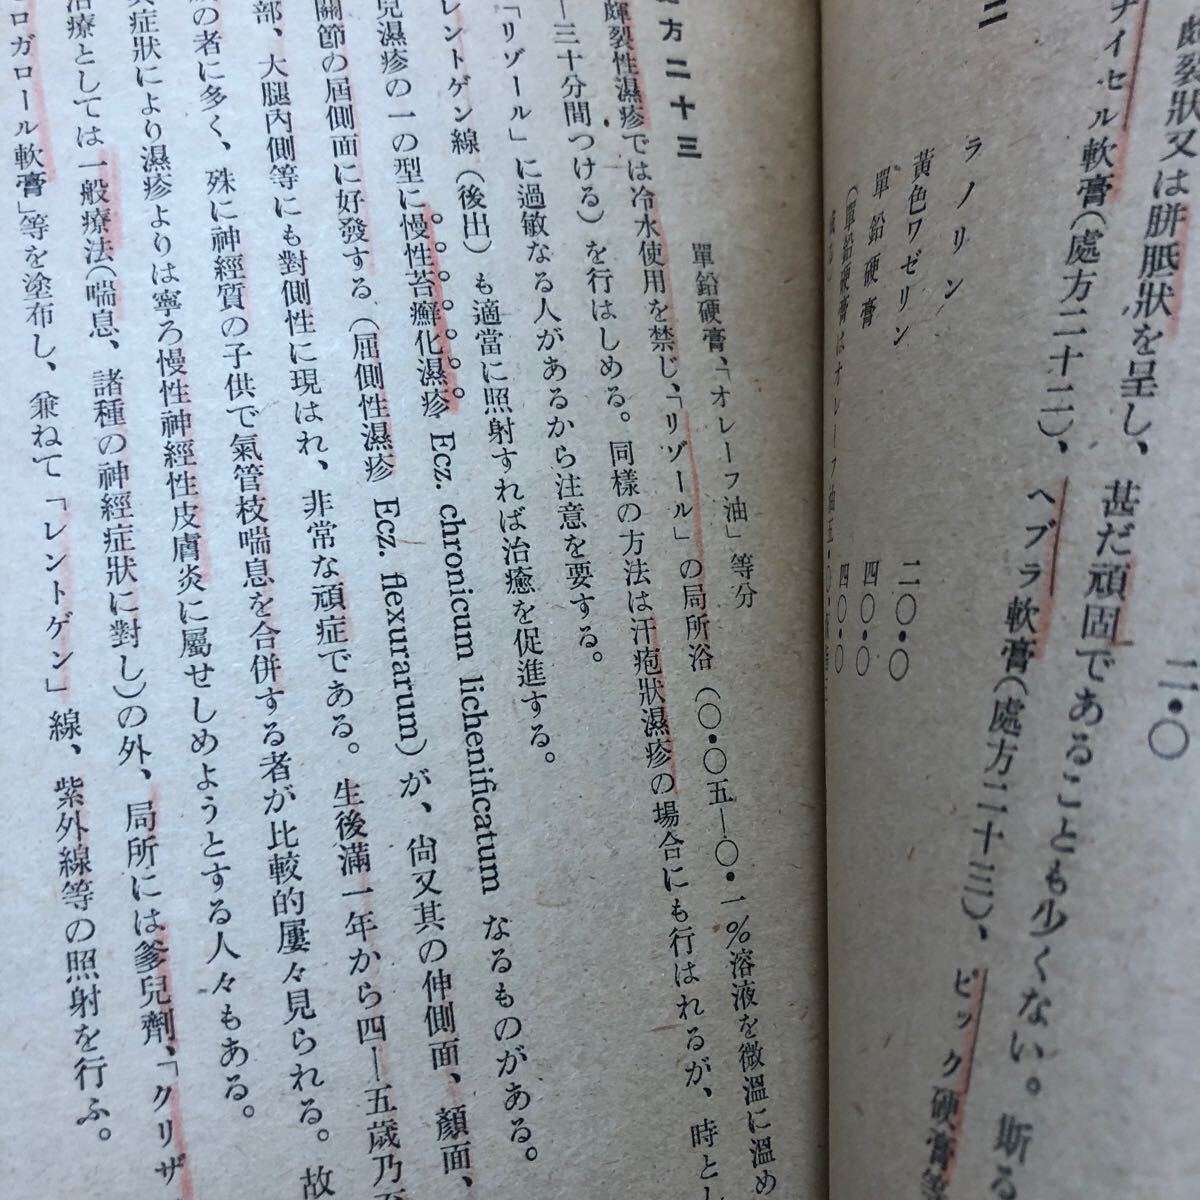 二・〇
皸裂狀又は胼胝狀を呈し、甚だ頑固であることも少くない。斯る
ナイセル軟膏(處方二十二)、ヘブラ軟膏(處方二十三)、ピック硬膏等
二
ラノリン 二〇・〇
黃色ワゼリン 四〇・〇
單鉛硬膏 四〇・〇
(單鉛硬膏はオレーフ油五・〇
方二十三
單鉛硬膏、「オレーフ油」等分
皸裂性濕疹では冷水使用を禁じ、「リゾール」の局所浴(〇・〇五—〇・一%溶液を微溫に溫め
—三十分間つける)を行はしめる。同樣の方法は汗疱狀濕疹の場合にも行はれるが、時とし
「リゾール」に過敏なる人があるから注意を要する。
レントゲン線(後出)も適當に照射すれば治癒を促進する。
兒濕疹の一の型に慢性苔癬化濕疹 Ecz. chronicum lichenificatum なるものがある。
關節の屈側面に好發する(屈側性濕疹 Ecz. flexurarum)が、尙又其の伸側面、顏面、
部、大腿內側等にも對側性に現はれ、非常な頑症である。生後滿一年から四—五歲乃至
の者に多く、殊に神經質の子供で氣管枝喘息を合併する者が比較的屢々見られる。故
症狀により濕疹よりは寧ろ慢性神經性皮膚炎に屬せしめようとする人々もある。
治療としては一般療法(喘息、諸種の神經症狀に對し)の外、局所には爹兒劑、「クリザ
ロガロール軟膏」等を塗布し、兼ねて「レントゲン」線、紫外線等の照射を行ふ。